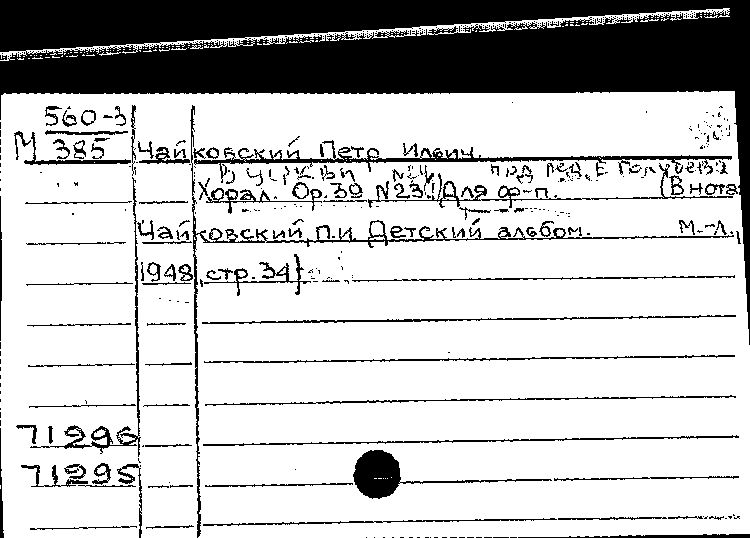 560-3
М 385 Чайковский Петр Ильич.
В церкви №24 под ред. Е Голубева
Хорал. Ор.39, №23. Для ф-п. (В нота
Чайковский, П.И. Детский альбом. М.-Л.,
1948, стр.34}
71296
71295